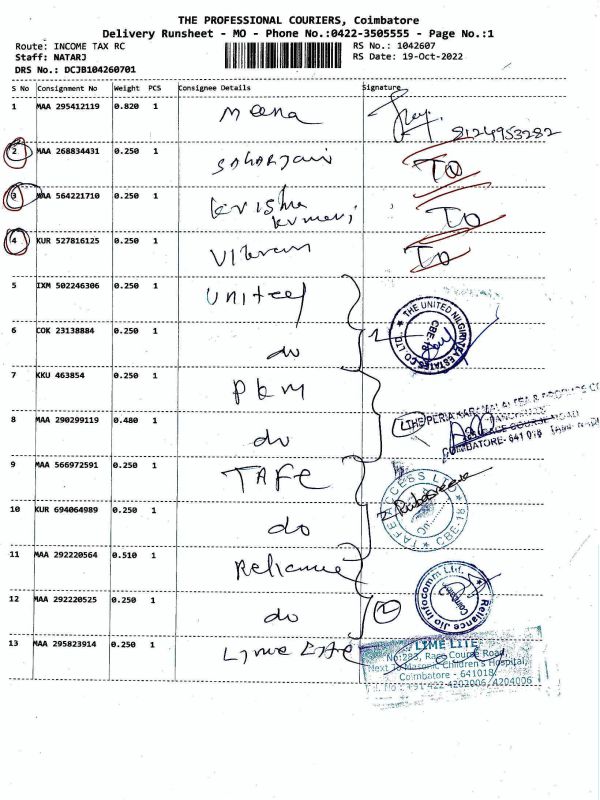 THE PROFESSIONAL COURIERS, Coimbatore
Delivery Runsheet - MO - Phone No.:0422-3505555 - Page No.:1
Route: INCOME TAX RC RS No.: 1042607
Staff: NATARJ RS Date: 19-Oct-2022
DRS No.: DCJB104260701
S No Consignment No Weight PCS Consignee Details Signature
1 MAA 295412119 0.820 1 Meena
8124953282
2 MAA 268834431 0.250 1 TO
3 MAA 564221710 0.250 1 Krishna
Kumari TO
4 KUR 527816125 0.250 1 Vikram TO
5 IXM 502246306 0.250 1 United
THE UNITED NILGIRI TEA ESTATES CO LTD. CBE-18
6 COK 23138884 0.250 1 do 2
7 KKU 463854 0.250 1 PKM
8 MAA 290299119 0.480 1 do
RACE COURSE ROAD
COIMBATORE- 641 018
9 MAA 566972591 0.250 1 TAFE
TAFE ACCESS LTD CBE-18
10 KUR 694064989 0.250 1 do 2
11 MAA 292220564 0.510 1 Reliance
Reliance Jio Infocomm Ltd.
12 MAA 292220525 0.250 1 do 2
13 MAA 295823914 0.250 1 Lime Lite
LIME LITE
No:283, Race Course Road,
Next To Masonic Children's Hospital,
Coimbatore - 641018
+91 422 4202006, 4204006